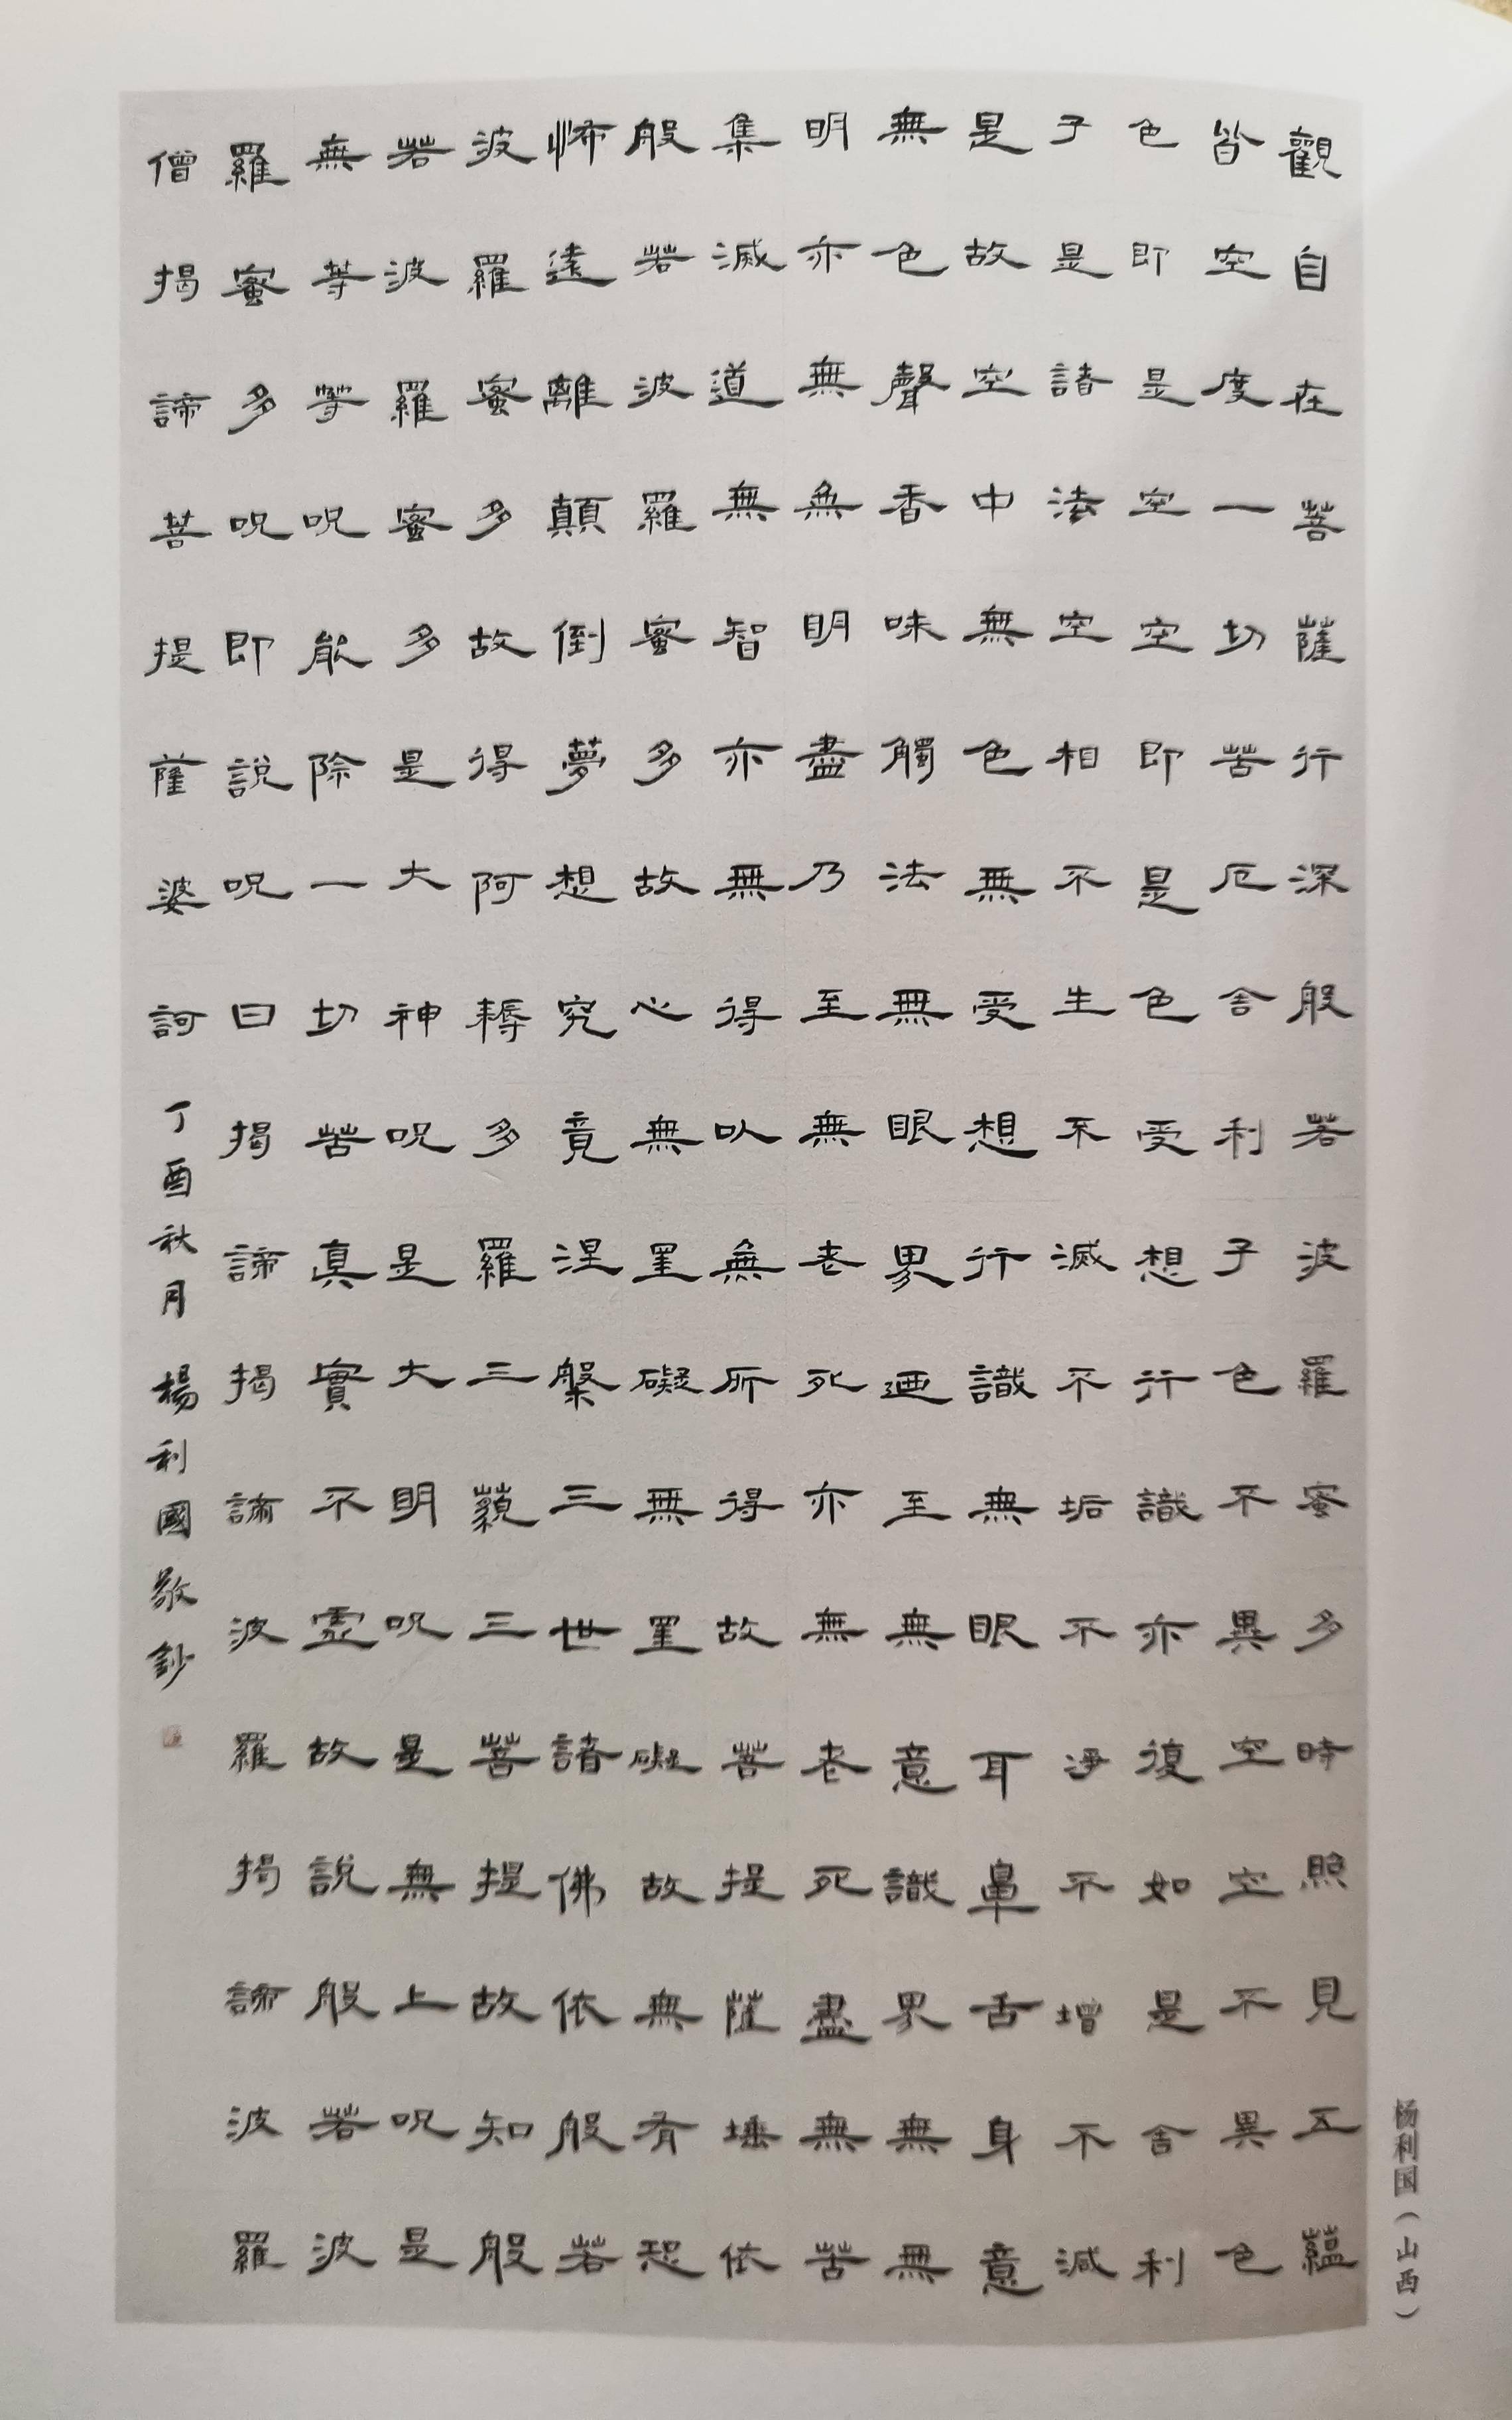 觀自在菩薩行深般若波羅蜜多時照見五蘊
皆空度一切苦厄舍利子色不異空空不異色
色即是空空即是色受想行識亦復如是舍利
子是諸法空相不生不滅不垢不淨不增不減
是故空中無色無受想行識無眼耳鼻舌身意
無色聲香味觸法無眼界迺至無意識界無無
明亦無無明盡乃至無老死亦無老死盡無苦
集滅道無智亦無得以無所得故菩提薩埵依
般若波羅蜜多故心無罣礙無罣礙故無有恐
怖遠離顛倒夢想究竟涅槃三世諸佛依般若
波羅蜜多故得阿耨多羅三藐三菩提故知般
若波羅蜜多是大神呪是大明呪是無上呪是
無等等呪能除一切苦真實不虛故說般若波
羅蜜多呪即說呪曰揭諦揭諦波羅揭諦波羅
僧揭諦菩提薩婆訶 丁酉秋月 楊利國敬鈔
杨利国（山西）